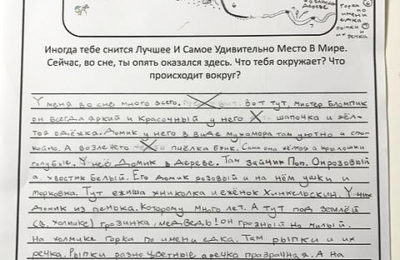 Горка
по имени
едка
рыпки
и их
речка
Иногда тебе снится Лучшее И Самое Удивительно Место В Мире.
Сейчас, во сне, ты опять оказался здесь. Что тебя окружает? Что
происходит вокруг?
У меня во сне много всего. Вот тут, мистер Блампик
он всегда яркий и красочный у него шапочка и жёл-
тая одёжка. Домик у него в виде мухомора там уютно и спо-
койно. А возле него пчёлка Бзик. Сама она жёлтая а крылошки
голубые. У неё Домик в Дереве. Там зайчик Поп. Он розовый
а хвостик белый. Его Домик розовый и на нём ушки и
морковка. Тут ежиха хниколка и ежонок Хинкельский. У них
Домик из пенька. Которому много лет. А тут под землёй
(в холмике) грозинка. медведь! он грозный но милый.
На холмике горка по имени едка. Там рыпки и их
речка. Рыпки разно цветные а речка прозрачная. А на